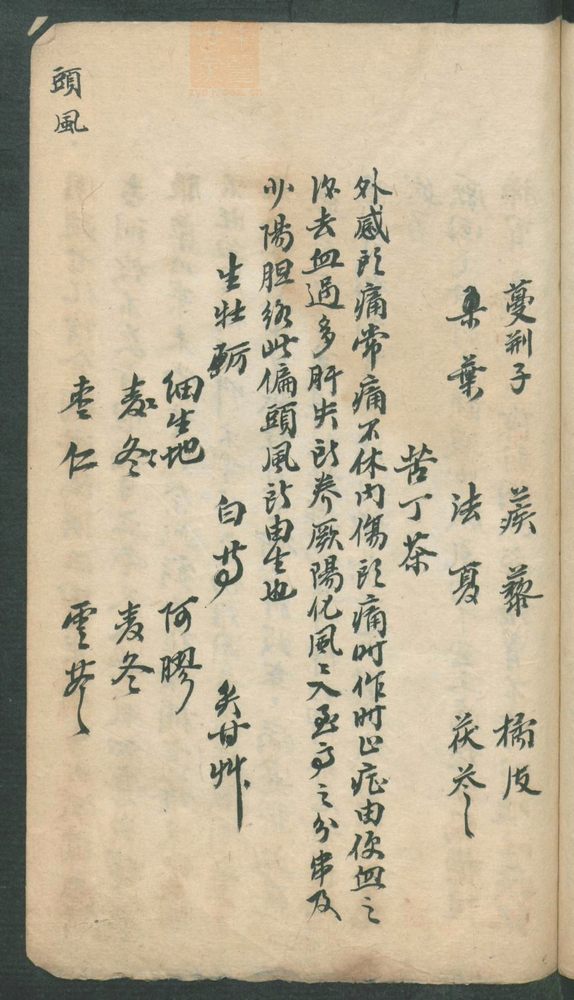 頭風
蔓荆子 蒺藜 橘皮
桑葉 法夏 茯苓
苦丁茶
外感頭痛常痛不休內傷頭痛时作时止症由便血之
後去血過多肝失所养厥陽化風々入巫字之分串及
少陽胆絡此偏頭風所由生也
生牡蛎 白芍 炙甘艸
細生地 阿膠
麦冬 麦冬
枣仁 雲苓